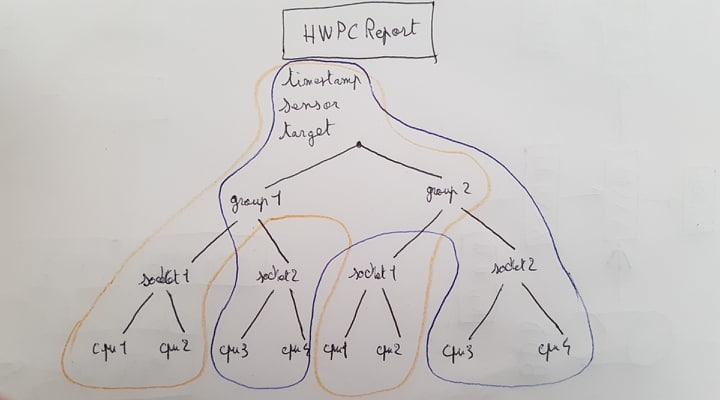 HWPC Report
timestamp
sensor
target
group 1 group 2
socket 1 socket 2 socket 1 socket 2
cpu 1 cpu 2 cpu 3 cpu 4 cpu 1 cpu 2 cpu 3 cpu 4